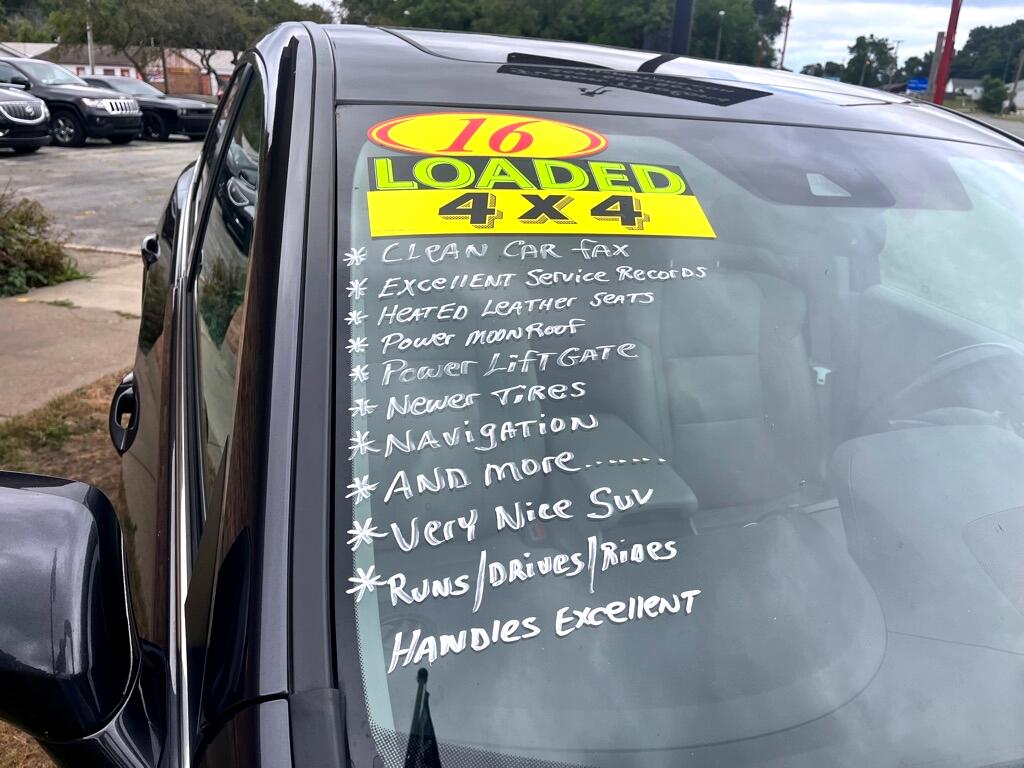 16
LOADED
4x4
* CLEAN CAR FAX
* Excellent Service Records
* Heated Leather Seats
* Power Moon Roof
* Power LiftGate
* Newer Tires
* Navigation
* And more........
* Very Nice Suv
* Runs/Drives/Rides
Handles Excellent